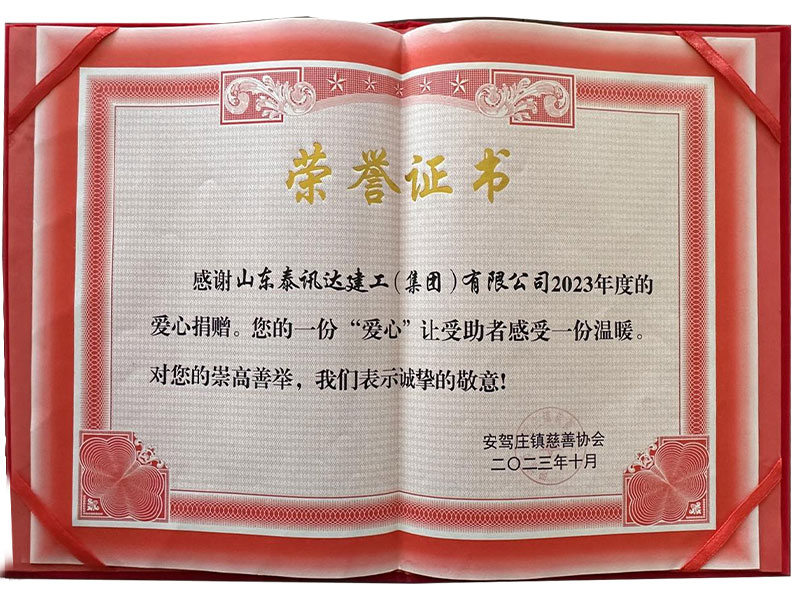 荣誉证书
感谢山东泰讯达建工（集团）有限公司2023年度的
爱心捐赠。您的一份“爱心”让受助者感受一份温暖。
对您的崇高善举，我们表示诚挚的敬意！
安驾庄镇慈善协会
二〇二三年十月